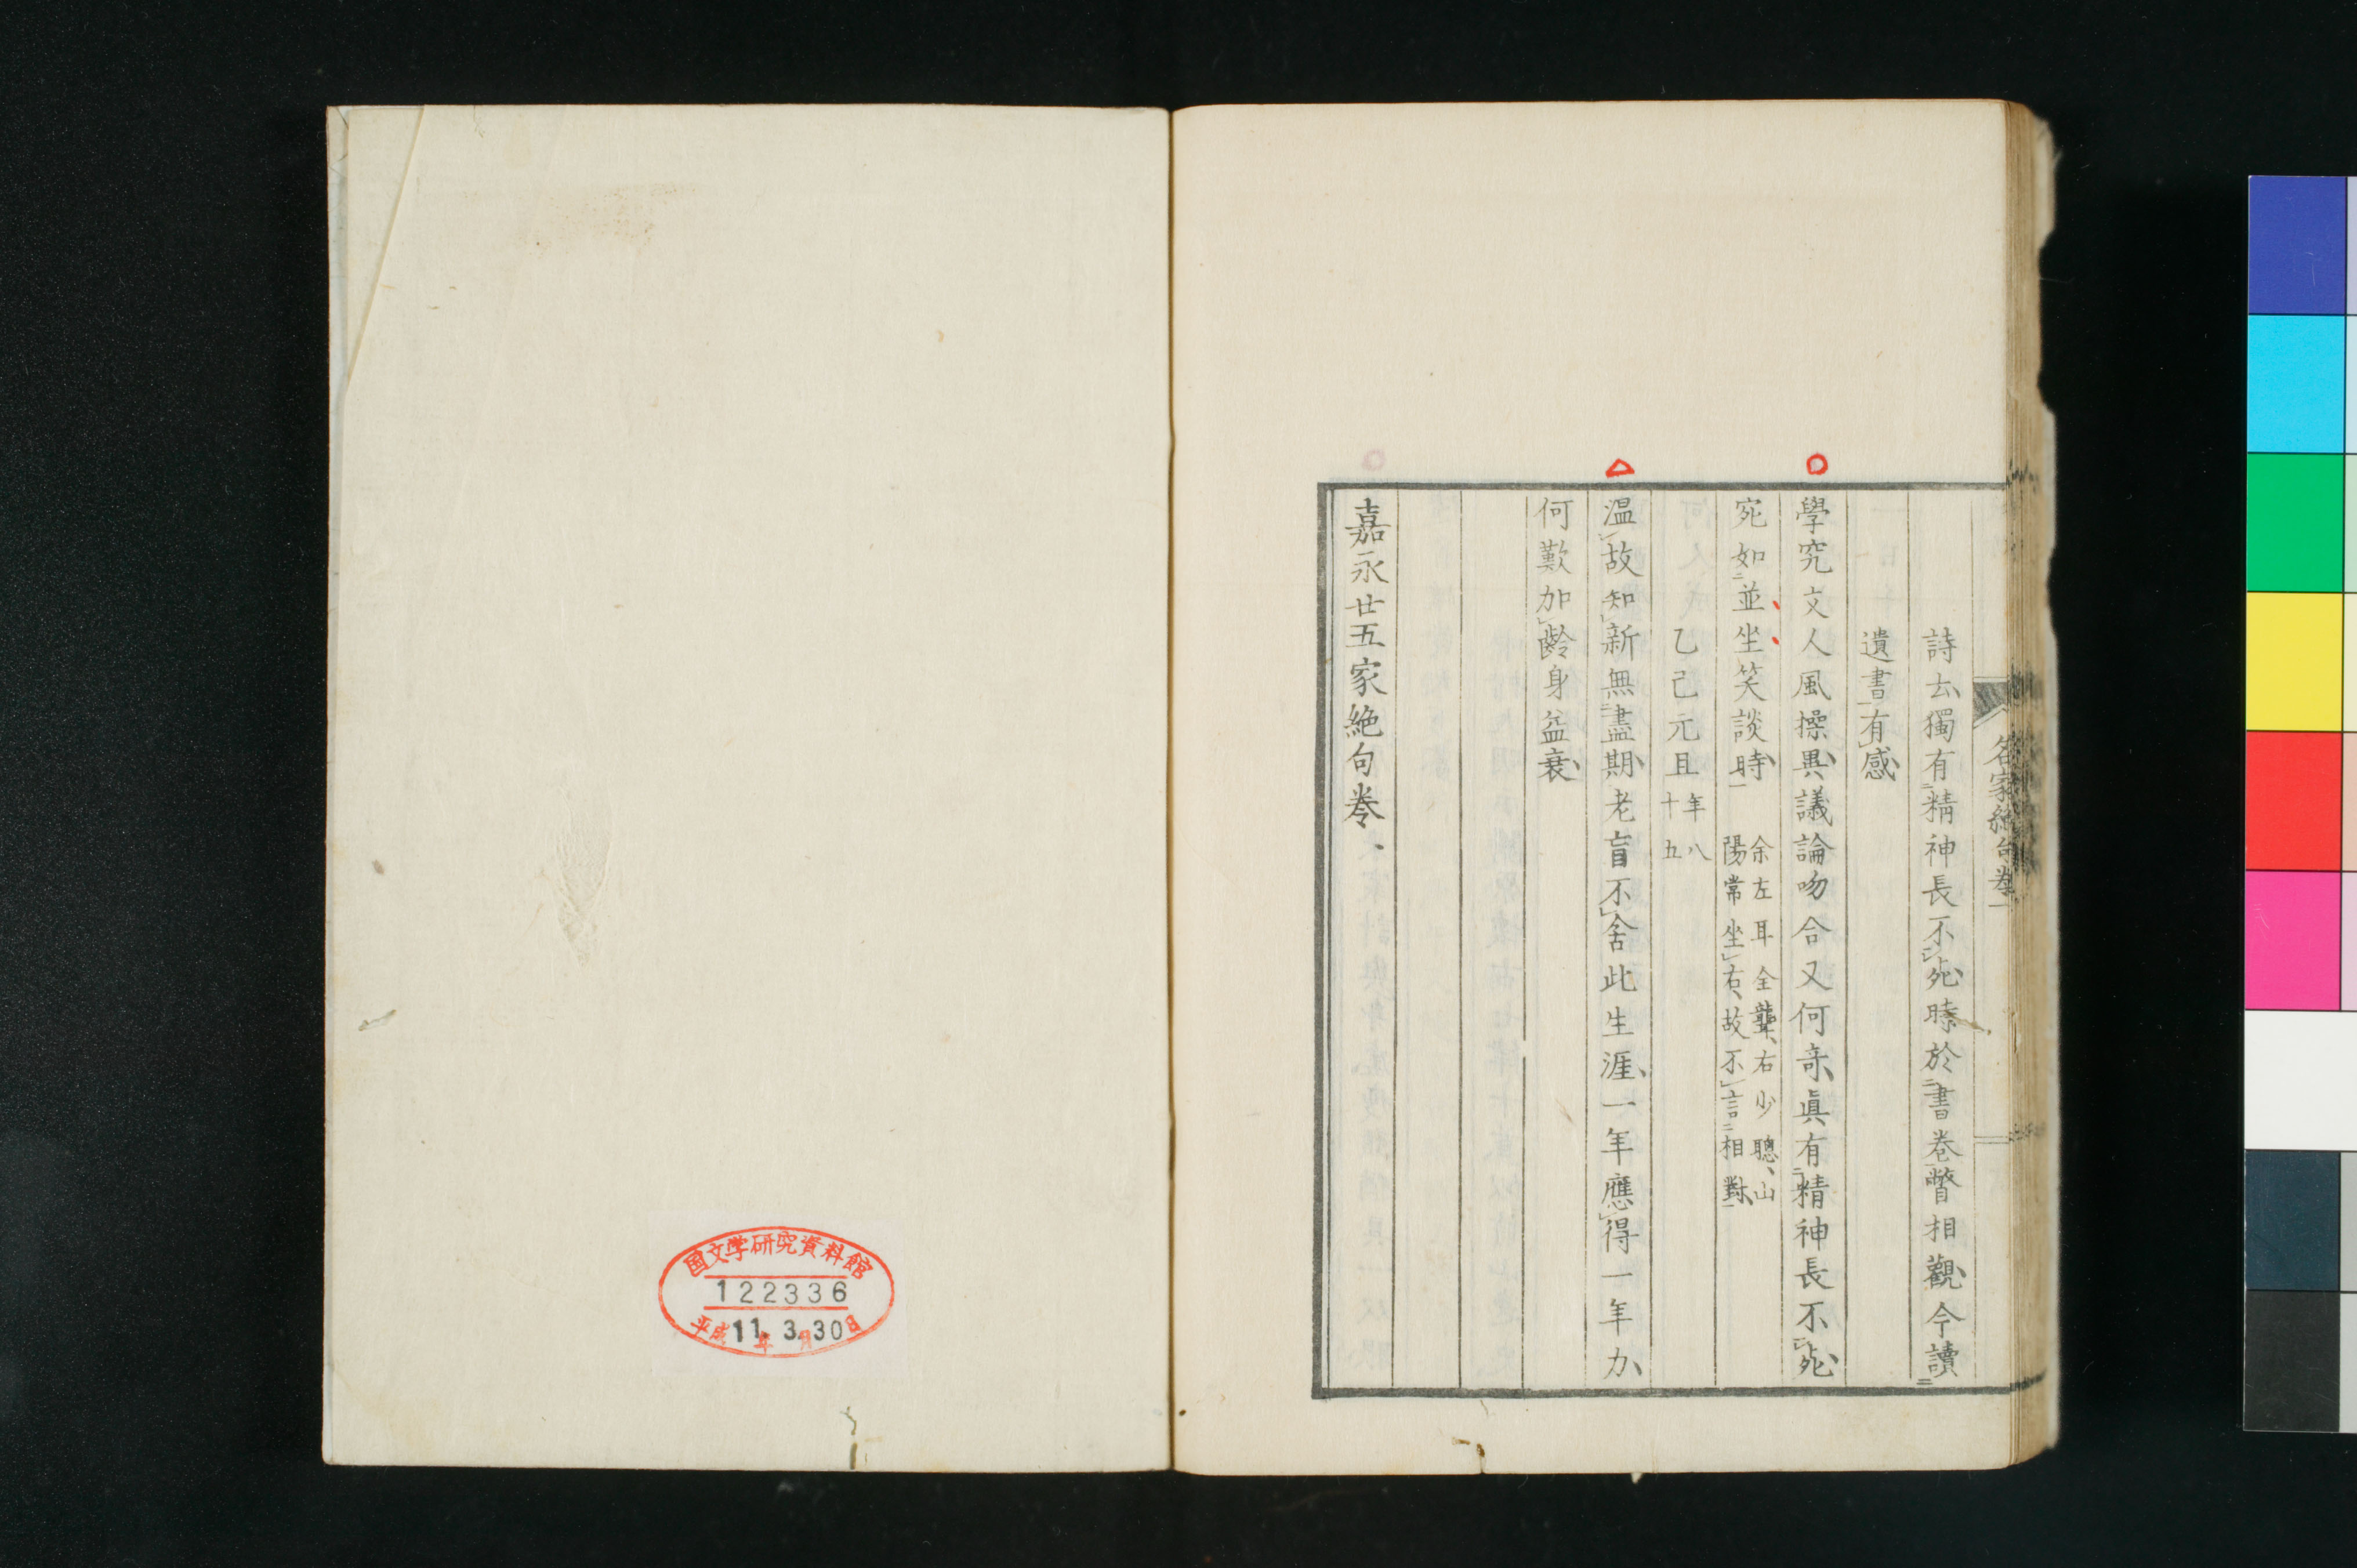 名家絶句卷一
詩去獨有精神長不死時於書卷瞥相觀今讀
遺書有感
學究文人風操異議論吻合又何奇眞有精神長不死
宛如並坐笑談時
余左耳全聾右少聰山
陽常坐右故不言相對
乙己元且
年八
十五
温故知新無盡期老盲不舍此生涯一年應得一年力
何歎加齡身益衰
嘉永廿五家絶句卷
国文学研究資料館
122336
平成11年3月30日